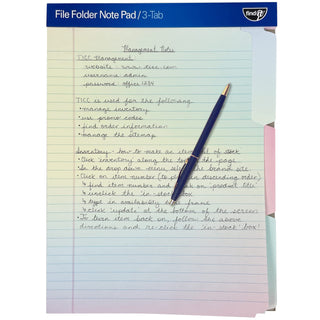 File Folder Note Pad / 3-Tab
find It
Management Notes
Management
website: www.
username: admin
password: office1234
is used for the following
• manage inventory
• use promo codes
• find order information
• manage the sitemap
Inventory - how to make an item out of stock
• Click 'inventory' along the top of the page
• In the drop down menu, select the brand site
• Click on item number (to put in descending order)
↳ find item number and click on 'product title'
↳ unclick the 'in stock'
↳ type in availability time frame
↳ click 'update' at the bottom of the screen
• To turn item back on, follow the above
directions and re-click the 'in-stock' box